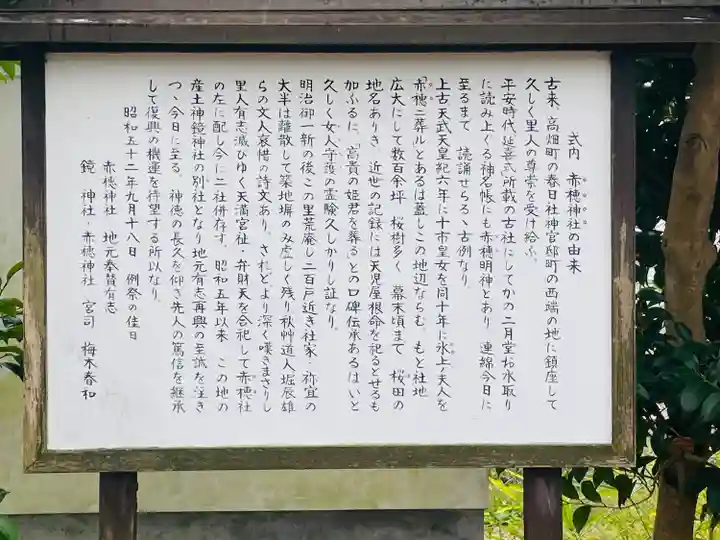 式内 赤穂神社の由来
古来、高畑町の春日社神官邸町の西端の地に鎮座して
久しく里人の尊崇を受け給ふ。
平安時代延喜式所載の古社にしてかの二月堂お水取り
に読み上ぐる神名帳にも赤穂明神とあり 連綿今日に
至るまで 読誦せらるゝ古例なり
上古天武天皇紀六年に十市皇女を同十年に氷上夫人を
「赤穂ニ葬ル」とあるは蓋しこの地辺ならむ もと社地
広大にして数百余坪 桜樹多く 幕末頃まで 桜田の
地名ありき 近世の記録には天児屋根命を祀るとせるも
加ふるに、「高貴の姫君を葬る」との口碑伝承あるはいと
久しく女人守護の霊験久しかりし証なり
明治御一新の後この里荒廃し二百戸近き社家・祢宜の
大半は離散して築地塀のみ虚しく残り秋艸道人・堀辰雄
らの文人哀惜の詩文あり、されどより深く嘆きまさりし
里人有志滅びゆく天満宮社・弁財天を合祀して赤穂社
の左に配し今に二社併存す。 昭和五年以来 この地の
産土神鏡神社の別社となり地元有志再興の至誠を注き
つゝ今日に至る。 神徳の長久を仰き先人の篤信を継承
して復興の機運を待望する所以なり。
昭和五十二年九月十八日 例祭の佳日
赤穂神社 地元奉賛有志
鏡 神社・赤穂神社 宮司 梅木春和